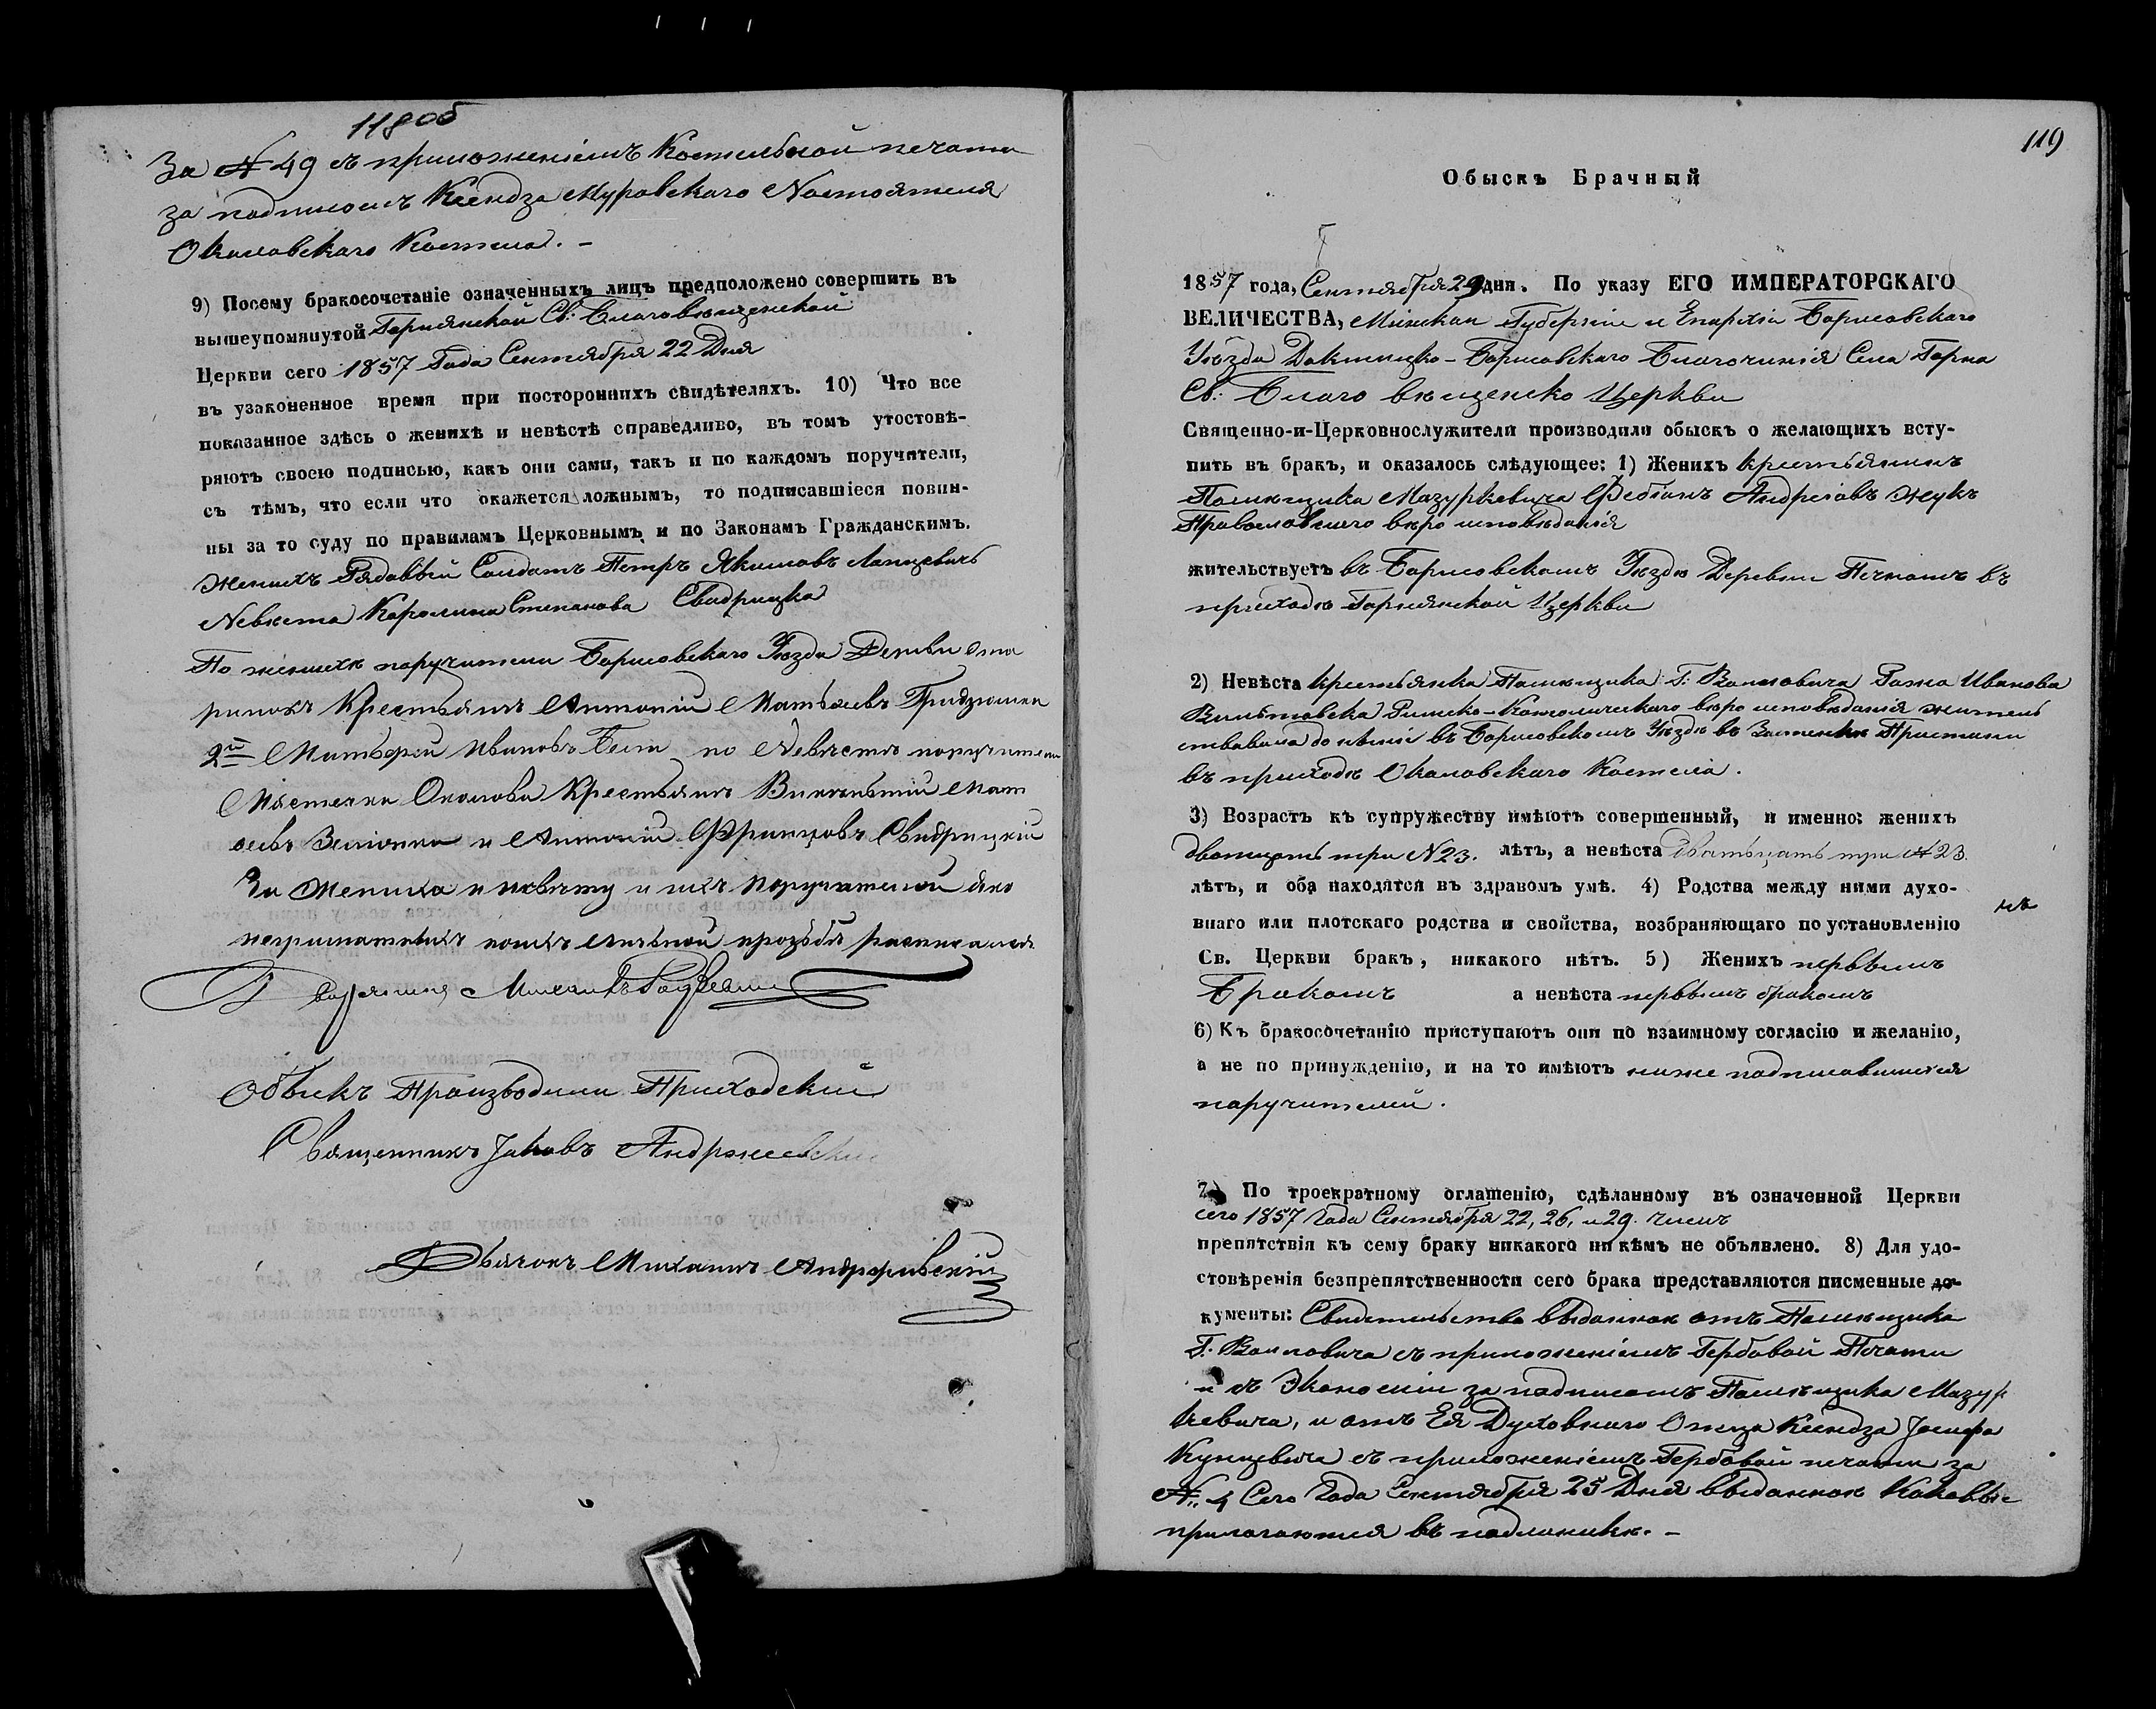 118об
За № 49 съ приложеніемъ Костельной печати
за подписомъ Ксендза Муровскаго Настоятеля
Околовскаго Костела. –
9) Посему бракосочетаніе означенныхъ лицъ предположено совершить въ
вышеупомянутой Горнянской Св: Благовѣщенской
Церкви сего 1857 Года Сентября 22 Дня
въ узаконенное время при постороннихъ свидѣтеляхъ. 10) Что все
показанное здѣсь о женихѣ и невѣстѣ справедливо, въ томъ утостовѣ-
ряютъ своею подписью, какъ они сами, такъ и по каждомъ поручители,
съ тѣмъ, что если что окажется ложнымъ, то подписавшіеся повин-
ны за то суду по правиламъ Церковнымъ и по Законамъ Гражданскимъ.
Женихъ Рядовый Солдатъ Петръ Якимовъ Лапцевичъ
Невѣста Каролина Степанова Свидрицка
По женихѣ поручители Борисовскаго Уѣзда
Крестьянъ Антоній Матвѣевъ
2й Матвѣй Ивановъ по Невѣстѣ поручители
Мястечка Околова Крестьянъ Викентій Мат
вѣевъ и Антоній Францовъ Свидрицкій
За Жениха и невѣсту и ихъ поручителей яко
неграматныхъ поихъ личьной прозьбѣ росписался
Дворянинъ Михаилъ
Обыскъ Производили Приходскій
Священникъ Јаковъ Андржеевскій
Дьячокъ Михаилъ Андржеевскій
119
Обыскъ Брачный
1857 года, Сентября 29 дня. По указу ЕГО ИМПЕРАТОРСКАГО
ВЕЛИЧЕСТВА, Минской Губерніи и Епархіи Борисовскаго
Уѣзда Докшицко-Борисовскаго Благочинія Села Горна
Св: Благо вѣщенско Церкви
Священно-и-Церковнослужители производили обыскъ о желающихъ всту-
пить въ бракъ, и оказалось слѣдующее: 1) Женихъ крестьянинъ
Помѣщика Мазуркевича Фебіанъ Андреовъ Жукъ
Православнаго вѣро исповѣданія
жительствуетъ въ Борисовскомъ Уѣздѣ Деревни Печкахъ въ
приходѣ Горнянской Церкви
2) Невѣста крестьянка Помѣщика Г: Воловича Роза Иванова
Римско-Католическаго вѣро исповѣданія житель
ствовала до нынѣ въ Борисовскомъ Уѣздѣ въ Застенкѣ Пристани
въ приходѣ Околовскаго Костела.
3) Возрастъ къ супружеству имѣютъ совершенный, и именно: женихъ
двотцать три N 23. лѣтъ, а невѣста двотьцать три № 23.
лѣтъ, и оба находятся въ здравомъ умѣ. 4) Родства между ними духо-
внаго или плотскаго родства и свойства, возбраняющаго по установленію
Св. Церкви бракъ, никакого нѣтъ. 5) Женихъ первымъ
Бракомъ а невѣста первымъ бракомъ
6) Къ бракосочетанію приступаютъ они по взаимному согласію и желанію,
а не по принужденію, и на то имѣютъ ниже подписавшихся
поручителей.
7) По троекратному оглашенію, сдѣланному въ означенной Церкви
сего 1857 Года Сентября 22, 26, и 29. числъ
препятствія къ сему браку никакого ни кѣмъ не объявлено. 8) Для удо-
стовѣренія безпрепятственности сего брака представляются писменные до-
кументы: Свидетельство выданное отъ Помѣщика
Г. Воловича съ приложеніемъ Гербовой Печати
и съ Экономіи за подписомъ Помѣщика Мазур
кевича, и отъ Ея Духовнаго Отца Ксендза Јосифа
Кунцевича съ приложеніемъ Гербовой печати за
№. 4 Сего Года Сентября 25 Дня выданное Каковые
прилагаются въ подлинникѣ. –